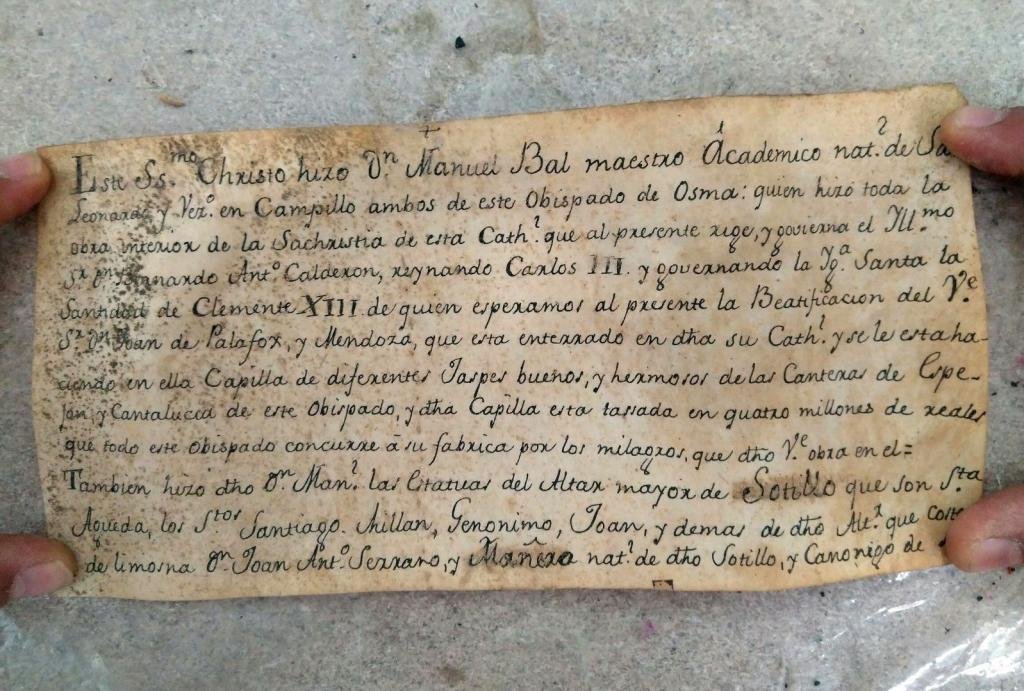 +
Este Ss.mo Christo hizo Dn Manuel Bal maestro Academico nat.l de Sn
Leonardo y Vez.o en Campillo ambos de este Obispado de Osma: quien hizo toda la
obra interior de la Sachristia de esta Cath.l que al presente rige, y govierna el Yll.mo
Sr Dn Bernardo Ant.o Calderon, reynando Carlos III. y governando la Yg.a Santa la
Santidad de Clemente XIII. de quien esperamos al presente la Beatificacion del V.e
Sr Dn Joan de Palafox, y Mendoza, que esta enterrado en dha su Cath.l y se le esta ha-
ciendo en ella Capilla de diferentes Jaspes buenos, y hermosos de las Canteras de Espe-
jon, y Cantalucia de este Obispado, y dha Capilla esta tassada en quatro millones de reales
que todo este Obispado concurre á su fabrica por los milagros, que dho V.e obra en el=
Tambien hizo dho Dn Man.l las Estatuas del Altar mayor de Sotillo que son S.ta
Agueda, los S.tos Santiago, Millan, Geronimo, Joan, y demas de dho Alt.r que costeo
de limosna Dn Joan Ant.o Serrano, y Mañero nat.l de dho Sotillo, y Canonigo de